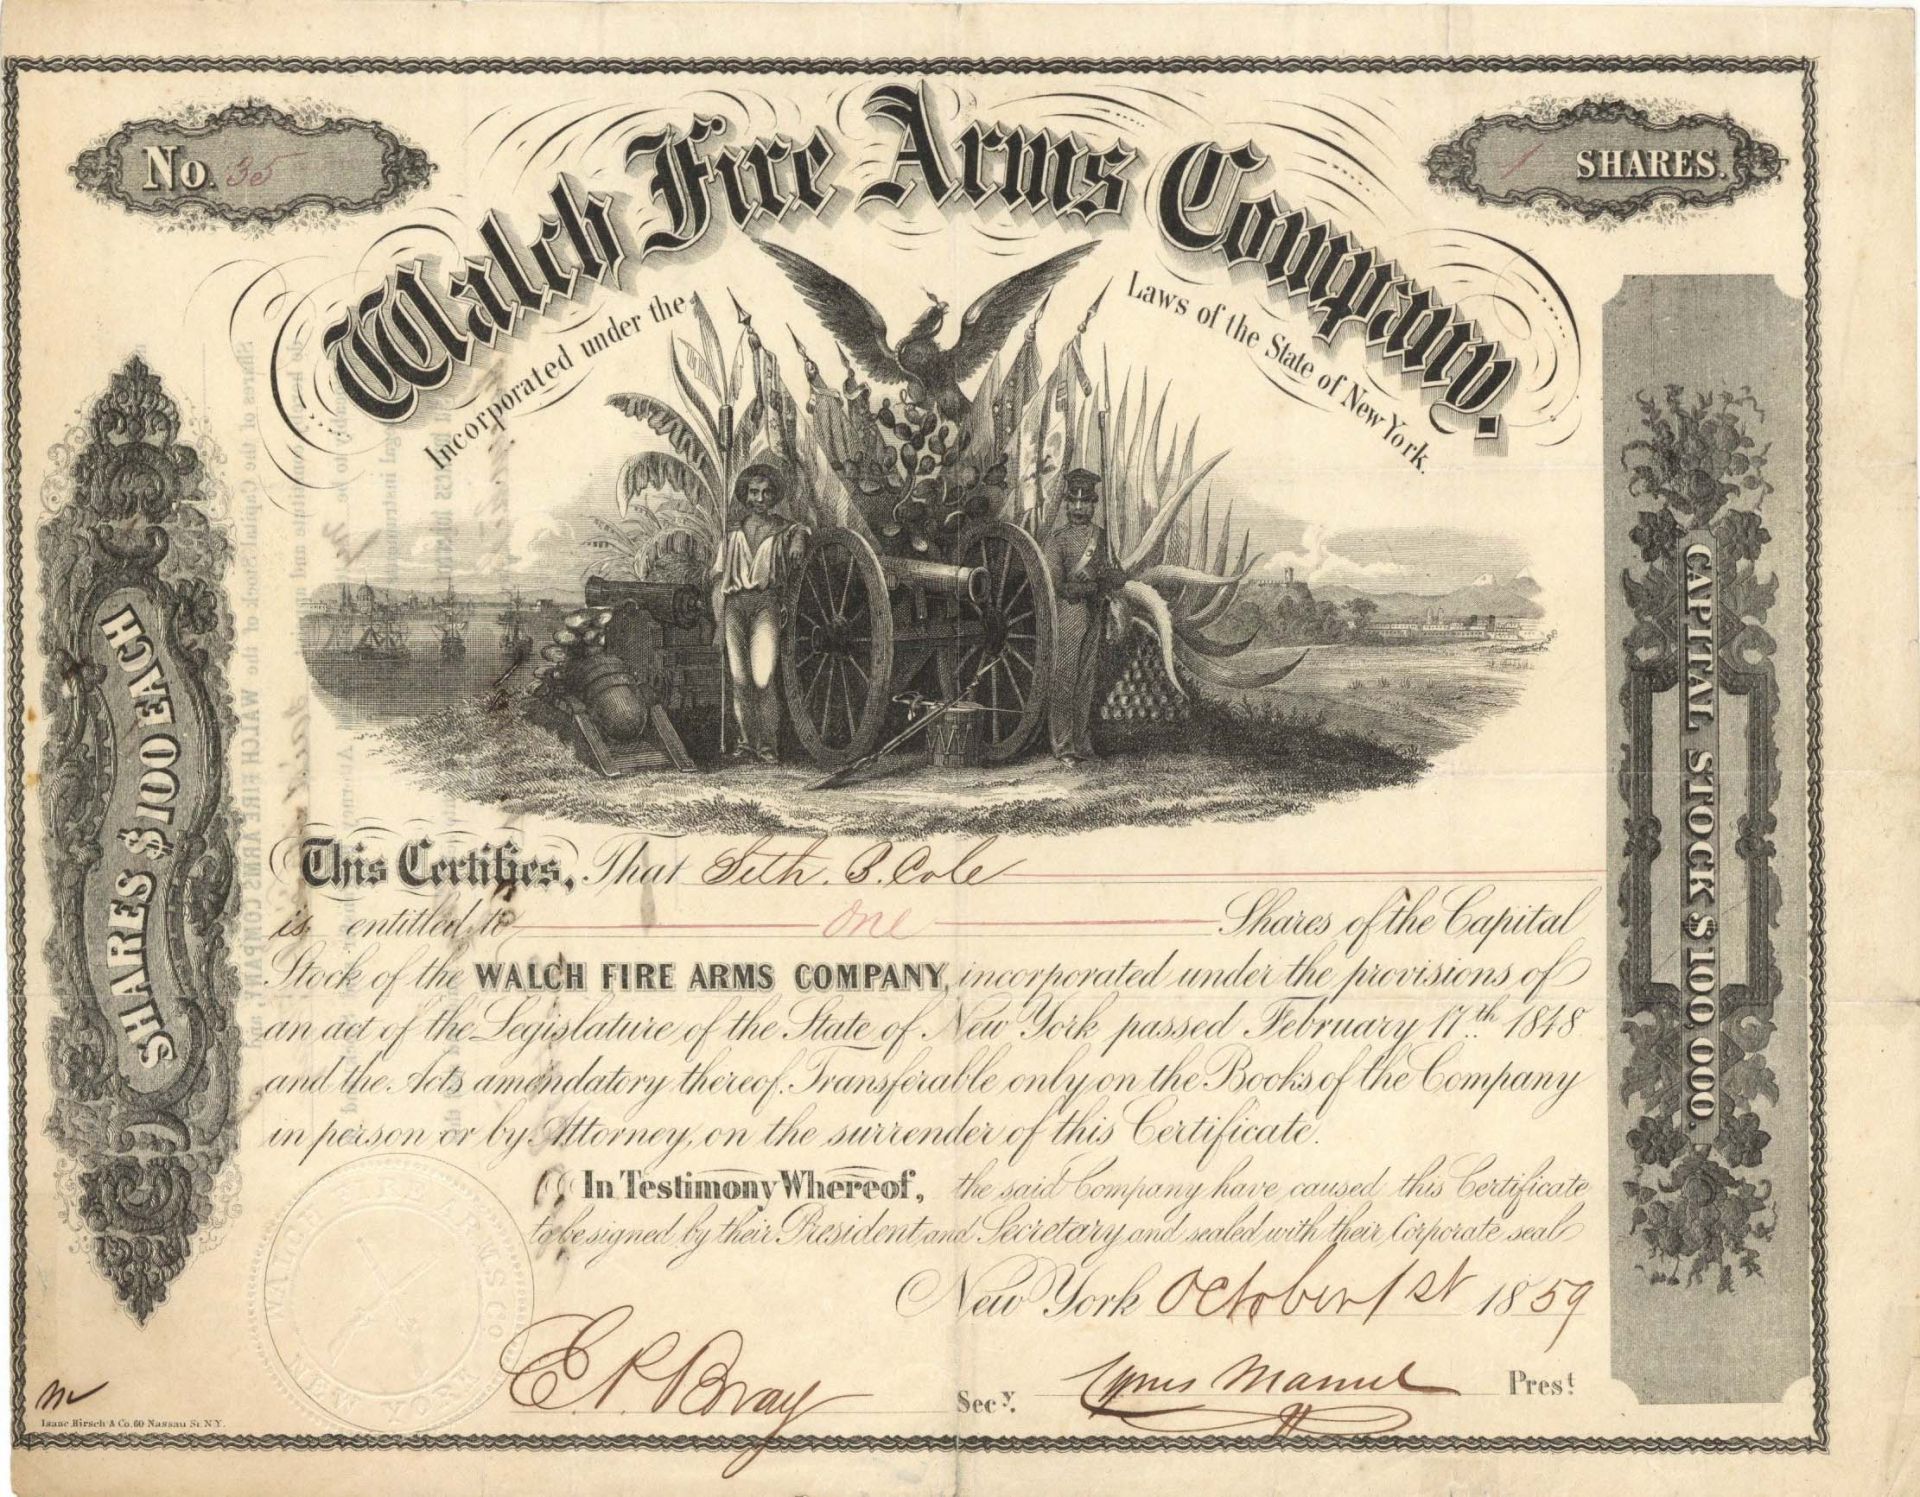 No. 35
1 SHARES.
Walch Fire Arms Company.
Incorporated under the
Laws of the State of New York.
SHARES $100 EACH
CAPITAL STOCK $100,000.
This Certifies, That Seth. B. Cole
is entitled to one Shares of the Capital
Stock of the WALCH FIRE ARMS COMPANY, incorporated under the provisions of
an act of the Legislature of the State of New York passed February 17th 1848
and the Acts amendatory thereof. Transferable only on the Books of the Company
in person or by Attorney, on the surrender of this Certificate.
In Testimony Whereof, the said Company have caused this Certificate
to be signed by their President and Secretary and sealed with their Corporate seal
New York October 1st 1859
Secy. Cyrus Manuel Prest
Isaac Hirsch & Co. 60 Nassau St. N.Y.